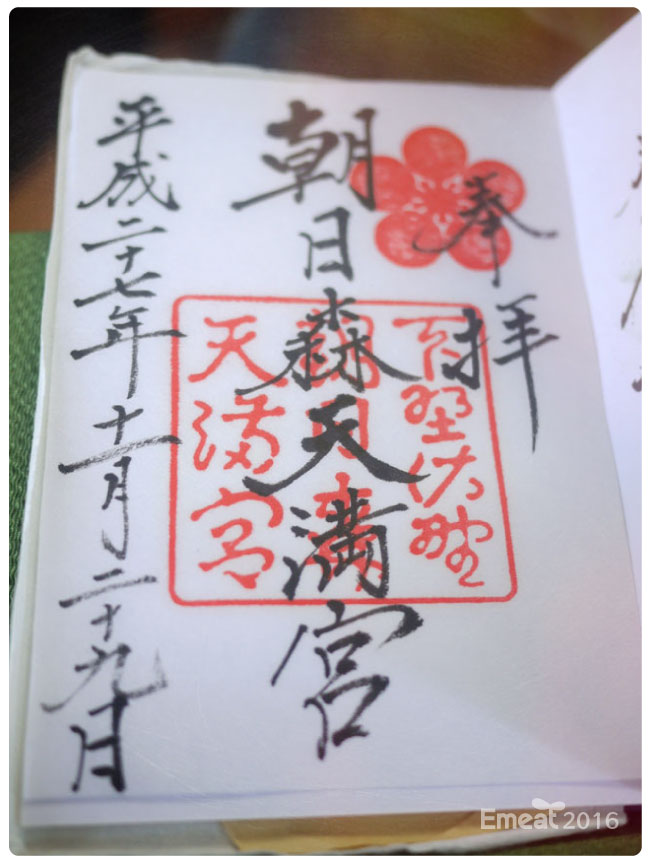 奉拝
朝日森天満宮
平成二十七年十一月二十九日
野佐野
朝日森
天満宮
Emeat 2016